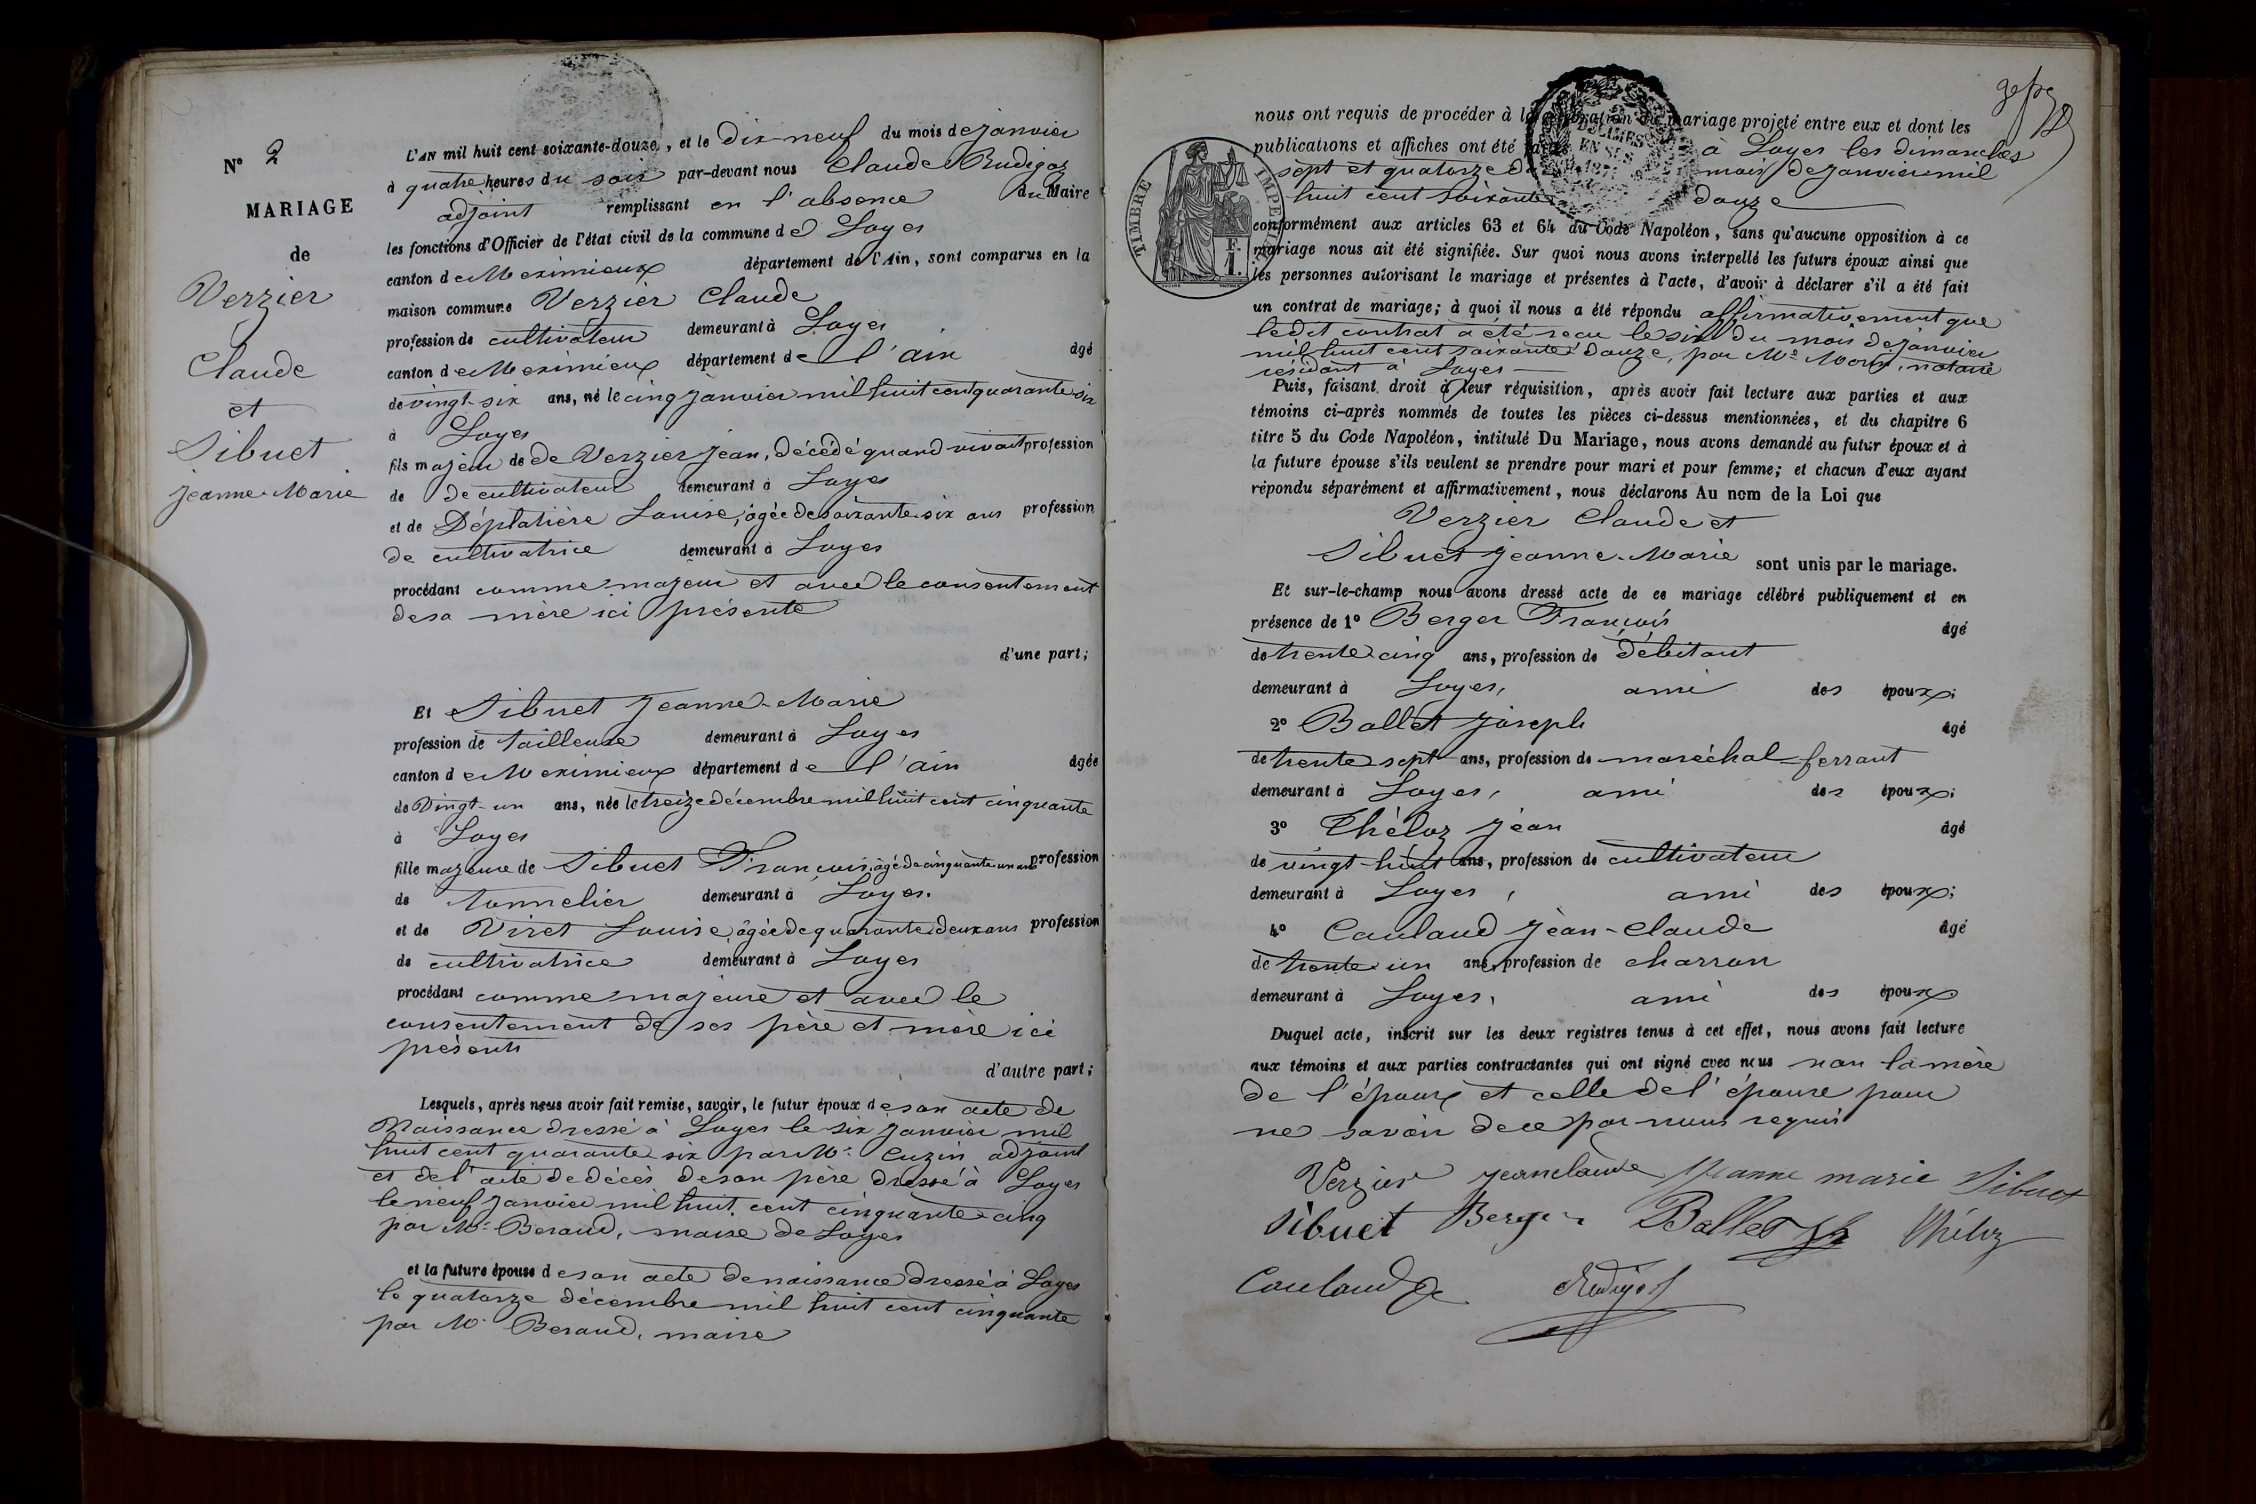 N° 2
MARIAGE
de
Verzier
Claude
et
Sibuet
Jeanne-Marie
L'AN mil huit cent soixante-douze, et le Dix-neuf du mois de Janvier
à quatre heures du soir par-devant nous Claude Rudigoz
adjoint remplissant en l'absence du Maire
les fonctions d'Officier de l'état civil de la commune de Loyes
canton de Meximieux département de l'Ain, sont comparus en la
maison commune Verzier Claude
profession de cultivateur demeurant à Loyes
canton de Meximieux département de l'ain âgé
de vingt-six ans, né le cinq Janvier mil huit cent quarante six
à Loyes
fils majeur de de Verzier Jean, décédé quand vivait profession
de de cultivateur demeurant à Loyes
et de Déplatière Louise, âgée de soixante-six ans profession
de cultivatrice demeurant à Loyes
procédant comme majeur et avec le consentement
de sa mère ici présente
d'une part;
Et Sibuet Jeanne-Marie
profession de tailleuse demeurant à Loyes
canton de Meximieux département de l'ain âgée
de Vingt-un ans, née le treize décembre mil huit cent cinquante
à Loyes
fille majeure de Sibuet François, âgé de cinquante-un ans profession
de tonnelier demeurant à Loyes.
et de Viret Louise, âgée de quarante deux ans profession
de cultivatrice demeurant à Loyes
procédant comme majeure et avec le
consentement de ses père et mère ici
présents
d'autre part;
Lesquels, après nous avoir fait remise, savoir, le futur époux de son acte de
Naissance dressé à Loyes le six Janvier mil
huit cent quarante-six par Mr. Cuzin adjoint
et de l'acte de décès de son père dressé à Loyes
le neuf Janvier mil huit cent cinquante-cinq
par Mr. Beraud, maire de Loyes
et la future épouse de son acte de naissance dressé à Loyes
le quatorze décembre mil huit cent cinquante
par Mr. Beraud, maire
nous ont requis de procéder à la célébration du mariage projeté entre eux et dont les
publications et affiches ont été faites à Loyes les dimanches
sept et quatorze du mois de Janvier mil
huit cent soixante douze
conformément aux articles 63 et 64 du Code Napoléon, sans qu'aucune opposition à ce
mariage nous ait été signifiée. Sur quoi nous avons interpellé les futurs époux ainsi que
les personnes autorisant le mariage et présentes à l'acte, d'avoir à déclarer s'il a été fait
un contrat de mariage; à quoi il nous a été répondu affirmativement que
ledit contrat a été reçu le six du mois de Janvier
mil huit cent soixante douze, par Me notaire
résidant à Loyes
Puis, faisant droit à leur réquisition, après avoir fait lecture aux parties et aux
témoins ci-après nommés de toutes les pièces ci-dessus mentionnées, et du chapitre 6
titre 5 du Code Napoléon, intitulé Du Mariage, nous avons demandé au futur époux et à
la future épouse s'ils veulent se prendre pour mari et pour femme; et chacun d'eux ayant
répondu séparément et affirmativement, nous déclarons Au nom de la Loi que
Verzier Claude et
Sibuet Jeanne-Marie sont unis par le mariage.
Et sur-le-champ nous avons dressé acte de ce mariage célébré publiquement et en
présence de 1° Berger François âgé
de trente cinq ans, profession de débitant
demeurant à Loyes, ami des époux;
2° Ballet Joseph âgé
de trente-sept ans, profession de maréchal-ferrant
demeurant à Loyes, ami des époux;
3° Théloz Jean âgé
de vingt-huit ans, profession de cultivateur
demeurant à Loyes, ami des époux;
4° Cauland Jean-Claude âgé
de trente-un ans, profession de charron
demeurant à Loyes, ami des époux
Duquel acte, inscrit sur les deux registres tenus à cet effet, nous avons fait lecture
aux témoins et aux parties contractantes qui ont signé avec nous non la mère
de l'époux et celle de l'épouse pour
ne savoir de ce par nous requis
Verzier jeanclaude Jeanne marie Sibuet
Sibuet Berger Ballet Théloz
Cauland Rudigoz
TIMBRE IMPERIAL
1 F.